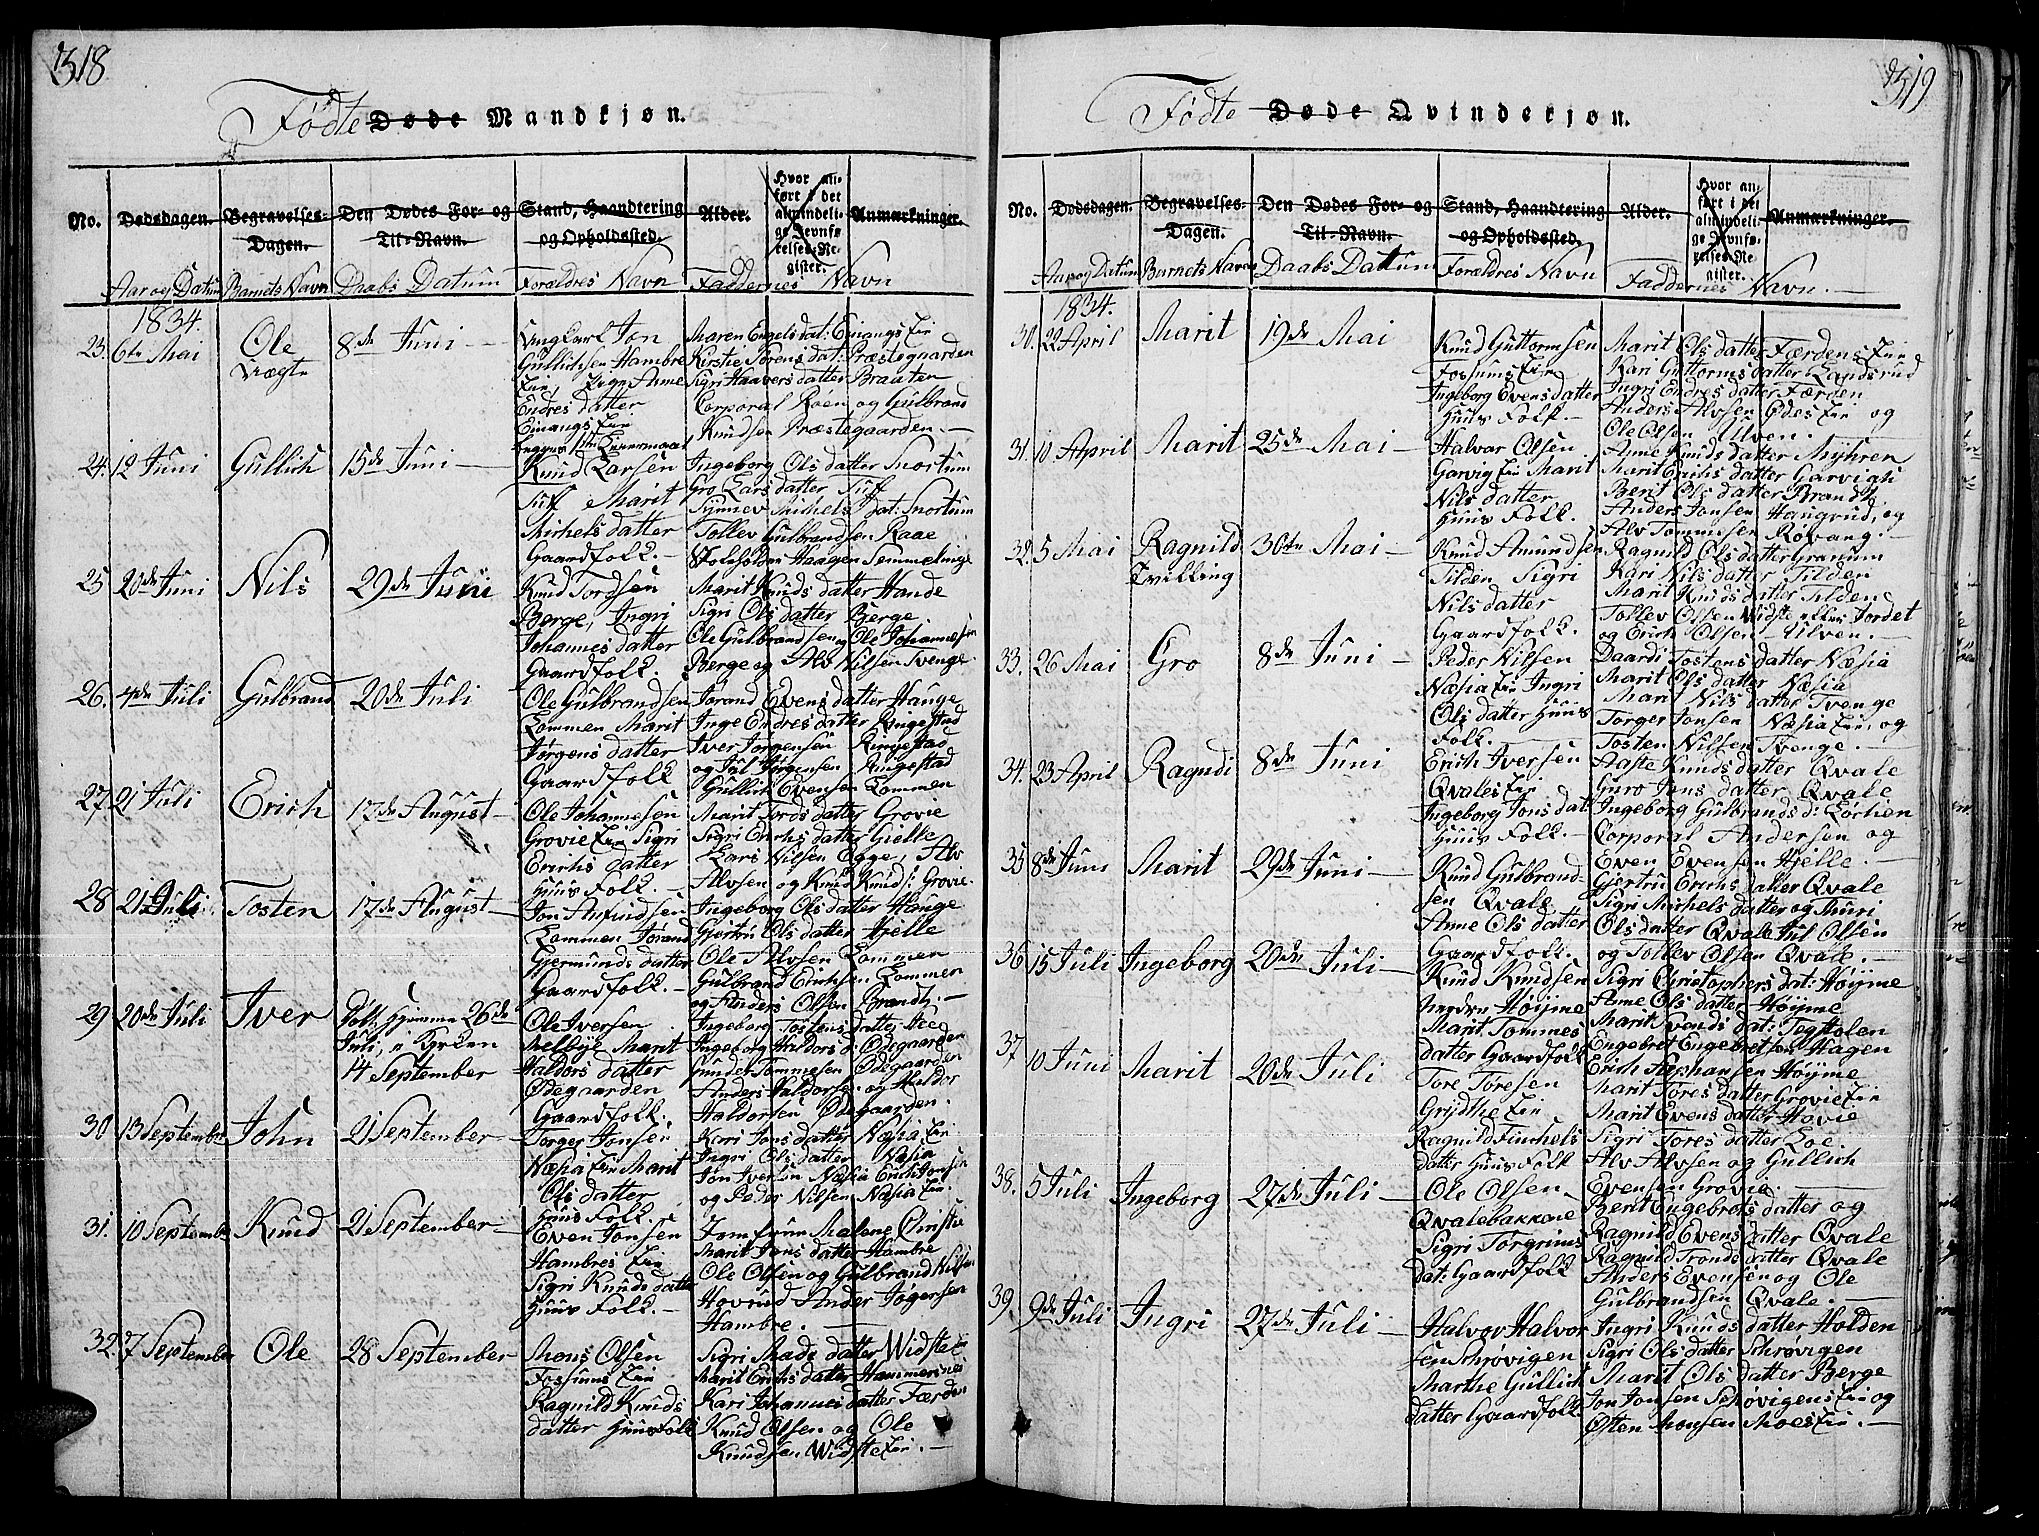 318
Fødte Døde Mandkjøn.
No. Dødsdagen. Begravelses-Dagen. Den Dødes For- og Til-Navn. Stand, Haandtering og Opholdssted. Alder. Hvor anført i det almindelige Jevnførelses-Register. Anmærkninger.
Aar og Datum Barnets Navn Daabs Datum Forældres Navn Faddernes Navn
1834.
23. 6te Mai Ole 8de Juni
Ungkarl Jon
Gullichsen Hambre
Eie, Pige Anne
Endres datter
Emangs Eie
Maren Engels dat: Emangs Eie
Kirstie Sørens dat: Præstegaarden
Sigri Haavers datter Brauten
Corporal Roen og Gulbrand
Knudsen Præstegaarden.
24. 12 Juni Gullich 15de Juni
Knud Larsen
Juf Marit
Michels datter
Gaardfolk.
Ingeborg Ols datter Snortum
Gro Lars datter Juf
Synnev Michels dat: Snortum
Tollev Gulbrandsen Raae
Haagen Semmelenge
25 20de Juni Nils 29de Juni
Knud Tordsen
Berge, Ingri
Johannes datter
Gaardfolk.
Marit Knuds datter Hande
Sigri Ols datter Berge
Ole Gulbrandsen og Ole Johannesen
Berge og Alv Nilsen Tvenge
26. 4de Juli Gulbrand 20de Juli
Ole Gulbrandsen
Lommen Marit
Jørgens datter
Gaardfolk
Jorand Evens datter Hauge
Inge Endres datter Ringestad
Iver Jørgensen Ringestad
og Jul Jørgensen Ringestad
Gullich Evensen Lommen
27. 21 Juli Erich 17de August
Ole Johannesen
Grovie Eie Sigri
Erichs datter
Huus Folk.
Marit Tords datter Grovie
Sigri Erichs datter Hjelle
Lars Nilsen Egge, Alv
Alvsen og Knud Knuds: Grovie
28 21 Juli Tosten 17de August
Jon Anfindsen
Lommen Jørand
Gjermunds datter
Gaardfolk.
Ingeborg Ols datter Hauge
Gjertru Ols datter Hjelle
Ole Alvsen Lommen
Gulbrand Erichsen Lommen
og Anders Olsen Brandt.
29 20de Juli Iver Døbt hjemme 26de
Juli, i Kirken
14 September
Ole Iversen
Melbye Marit
Haldors datter
Ødegaarden
Gaardfolk.
Ingeborg Tostens datter Hee
Ingeborg Haldors d: Ødegaarden
Gunder Tommesen Ødegaarden
Anders Haldorsen og Haldor
Haldorsen Ødegaarden.
30 13 September John 21 September
Torger Jonsen
Næsia Eie Marit
Ols datter
Huus Folk.
Kari Jons datter Næsia Eie
Ingri Ols datter Næsia
Jon Iversen Næsia Erich Jonsen
og Peder Nilsen Næsia Eie.
31. 10 September Knud 21 September
Even Jonsen
Hambres Eie
Sigri Knuds datter
Huus Folk.
Jomfrue Malene
Marit Jons datter Hambre
Ole Olsen og Gulbrand Nilsen
Hovrud Ander Jogersen
Hambre.
32. 7 September Ole 28 September
Mons Olsen
Fossums Eie
Ragnild Knuds
datter Huusfolk
Sigri Mads datter Widste Eie
Marit Erichs datter Hammersnes
Kari Johannes datter Færden
Knud Olsen og Ole
Knudsen Widste Eie.
319
Fødte Døde Qvindekjøn.
No. Dødsdagen. Begravelses-Dagen. Den Dødes For- og Til-Navn. Stand, Haandtering og Opholdssted. Alder. Hvor anført i det almindelige Jevnførelses-Register. Anmærkninger.
Aar og Datum Barnets Navn Daabs Datum Forældres Navn Faddernes Navn.
1834.
30. 22 April Marit 19de Mai
Knud Guttormsen
Fossums Eie
Ingeborg Evens datter
Huus Folk.
Marit Ols datter Færdens Eie
Kari Guttorms datter Landsrud
Ingri Endres datter Færden
Anders Alvsen Ødes Eie og
Ole Olsen Ulven.
31. 10 April Marit 25de Mai
Halvar Olsen
Garvig Eie Marit
Nils datter
Huus Folk.
Anne Knuds datter Myhren
Marit Erichs datter Garvigh
Berit Ols datter Brandt
Anders Jonsen Haugrud, og
Alv Tommesen Røvang.
32. 5 Mai Ragnild Tvilling 30te Mai
Knud Amundsen
Tilden Sigri
Nils datter
Gaardfolk.
Ragnild Ols datter Granum
Kari Nils datter Tilden
Marit Knuds datter Tilden
Tollev Olsen Widste Jordet
og Erich Olsen Ulven.
33. 26 Mai Gro 8de Juni
Peder Nilsen
Næsia Eie Ingri
Ols datter Huus
Folk.
Daardi Tostens datter Næsia
Marit Ols datter Næsia
Mari Nils datter Tvenge
Torger Jonsen Næsia Eie, og
Tosten Nilsen Tvenge.
34. 23 April Ragndi 8de Juni
Erich Iversen
Qvales Eie
Ingeborg Jons dat:
Huus Folk.
Aaste Knuds datter Qvale
Guro Jons datter Qvale
Ingeborg Gulbrands d: Lørhien
Corporal Andersen og
Even Evensen Hjelle.
35 8de Juni Marit 29de Juni
Knud Gulbrand-
sen Qvale
Anne Ols datter
Gaardfolk.
Gjertru Erichs datter Qvale
Sigri Michels datter og Thuri
Ols datter Qvale Jul Olsen
og Tollev Olsen Qvale.
36 15 Juli Ingeborg 20de Juli
Knud Knudsen
nedre Høijme
Marit Tommes
datter Gaardfolk
Sigri Christophers dat: Høijme
Anne Ols datter Høijme
Marit Svends dat: Tegholen
Engebret Engebretsen Hagen
Erich Stephansen Høijme
37 10 Juni Marit 20de Juli
Tore Toresen
Grijthe Eie
Ragnild Finchels
datter Huus Folk
Marit Tores datter Grovie Eie
Marit Evens datter Hovie
Sigri Tores datter Loe
Alv Alvsen og Gullich
Evensen Grovie.
38. 5 Juli Ingeborg 27de Juli
Ole Olsen
Qvalebakkene
Sigri Torgrims
dat: Gaardfolk
Berit Engebrets datter og
Ragnild Evens datter Qvale
Ragnild Tronds datter Qvale
Anders Evensen og Ole
Gulbrandsen Qvale.
39. 9de Juli Ingri 27de Juli
Halvor Halvor
sen Schrøvigen
Marthe Gullich
datter Gaardfolk
Ingri Knuds datter Holden
Sigri Ols datter Schrøvigen
Marit Ols datter Berge
Jon Jonsen Schrøvigens Eie og
Østen Monsen Moes Eie.